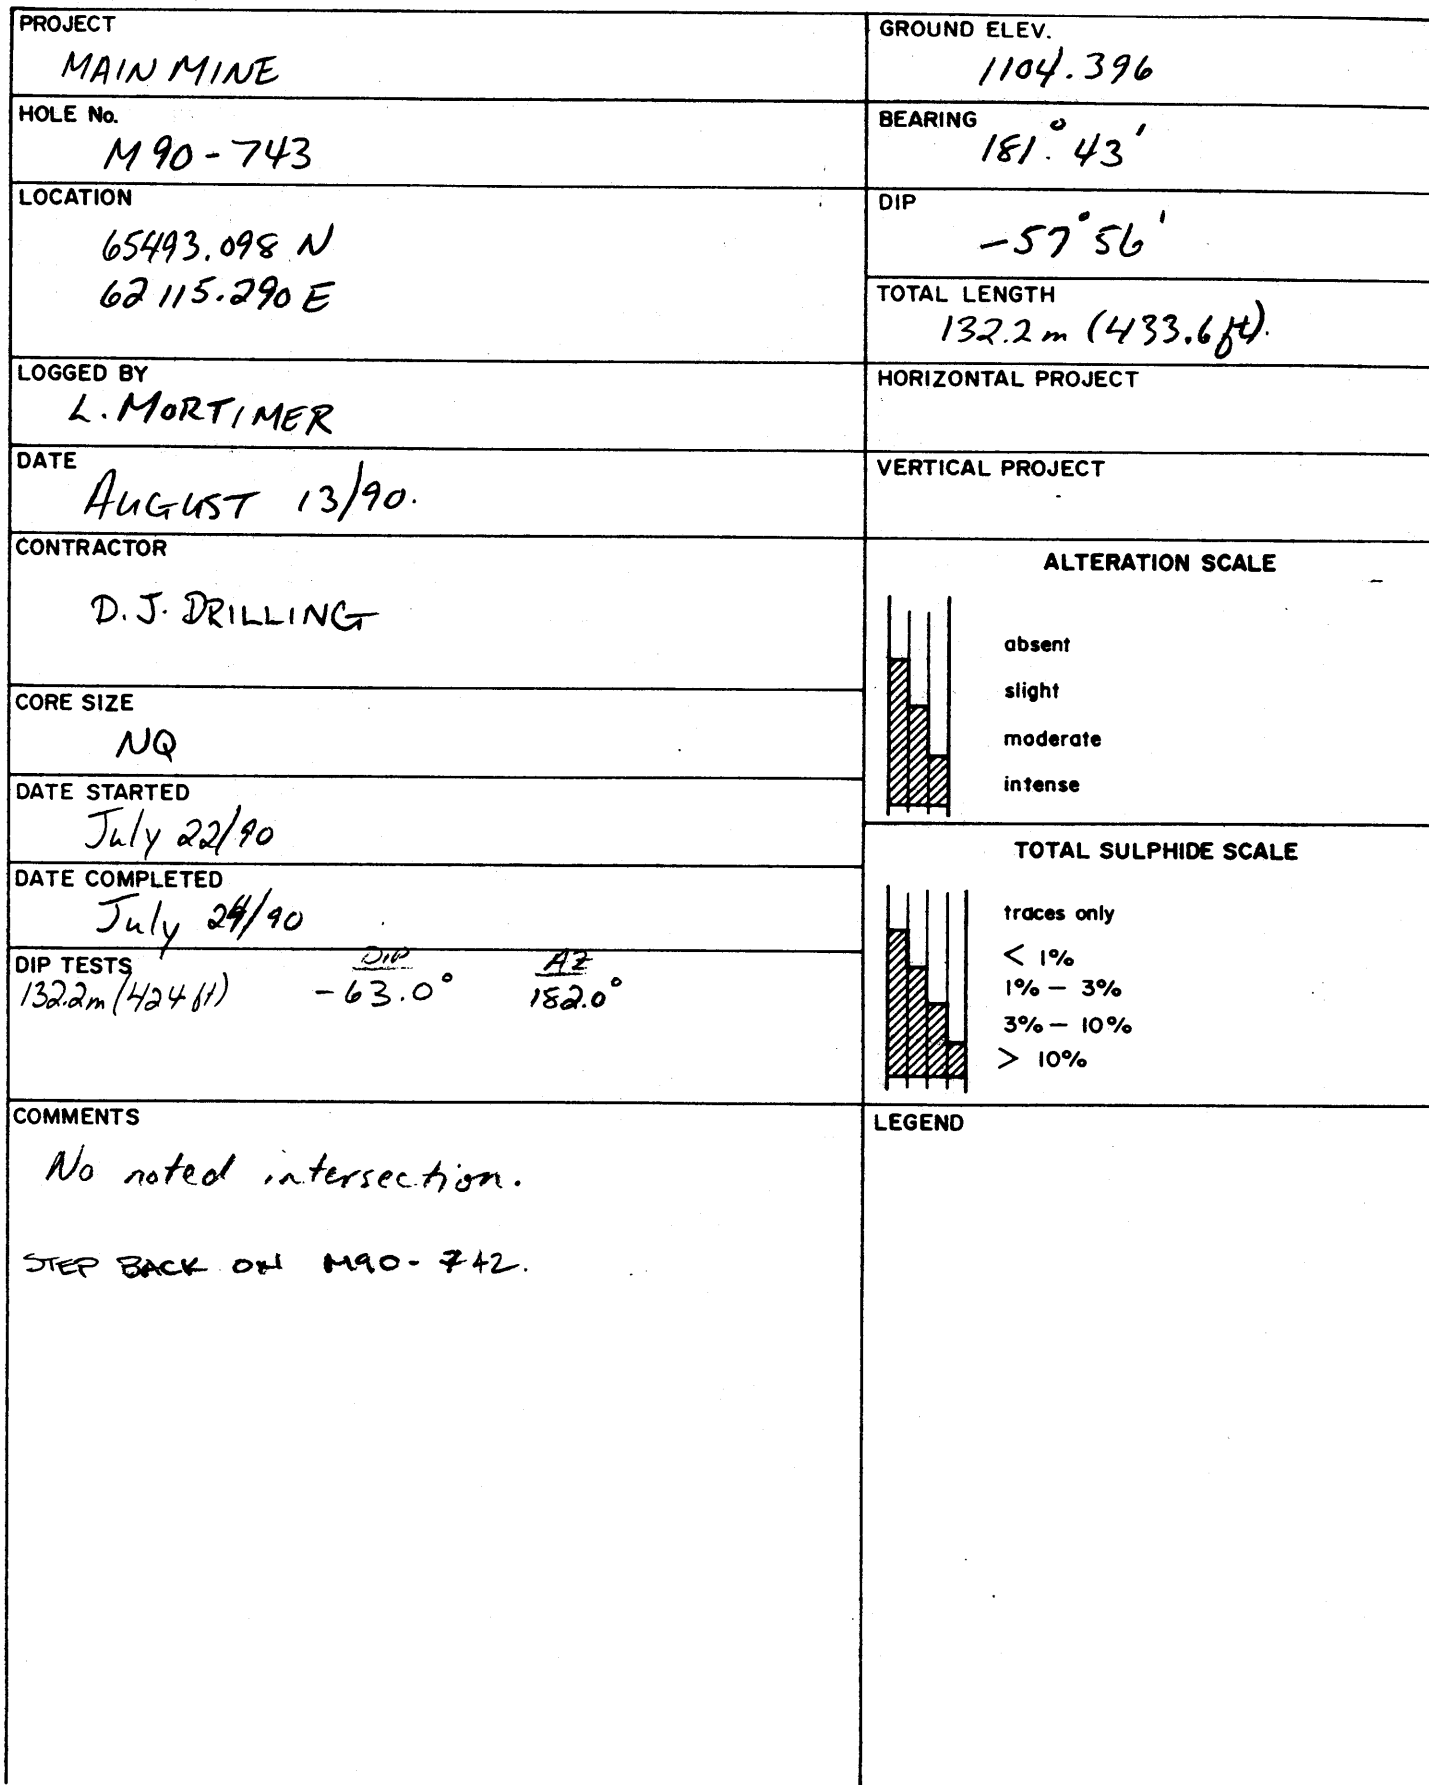 PROJECT
MAIN MINE
HOLE No.
M90-743
LOCATION
65493.098 N
62115.290 E
LOGGED BY
L. MORTIMER
DATE
AUGUST 13/90.
CONTRACTOR
D.J. DRILLING
CORE SIZE
NQ
DATE STARTED
July 22/90
DATE COMPLETED
July 24/90
DIP TESTS
DIP AZ
132.2m (424 ft) -63.0° 182.0°
COMMENTS
No noted intersection.
STEP BACK ON M90-742.
GROUND ELEV.
1104.396
BEARING
181.° 43'
DIP
-57° 56'
TOTAL LENGTH
132.2 m (433.6 ft).
HORIZONTAL PROJECT
VERTICAL PROJECT
ALTERATION SCALE
absent
slight
moderate
intense
TOTAL SULPHIDE SCALE
traces only
< 1%
1% — 3%
3% — 10%
> 10%
LEGEND